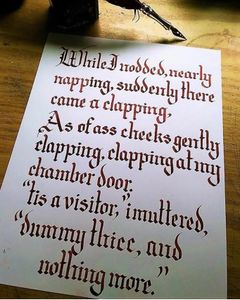 While I nodded, nearly
napping, suddenly there
came a clapping,
As of ass cheeks gently
clapping, clapping at my
chamber door.
"tis a visitor," i muttered,
"dummy thicc, and
nothing more."